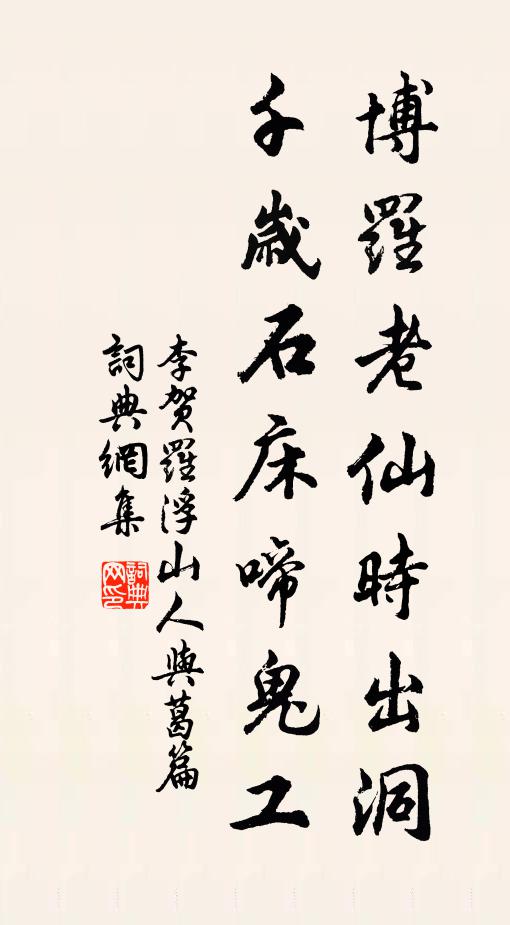 博羅老仙時出洞
千歲石床啼鬼工
李賀羅浮山人與葛篇
詞典網集
詞典网印